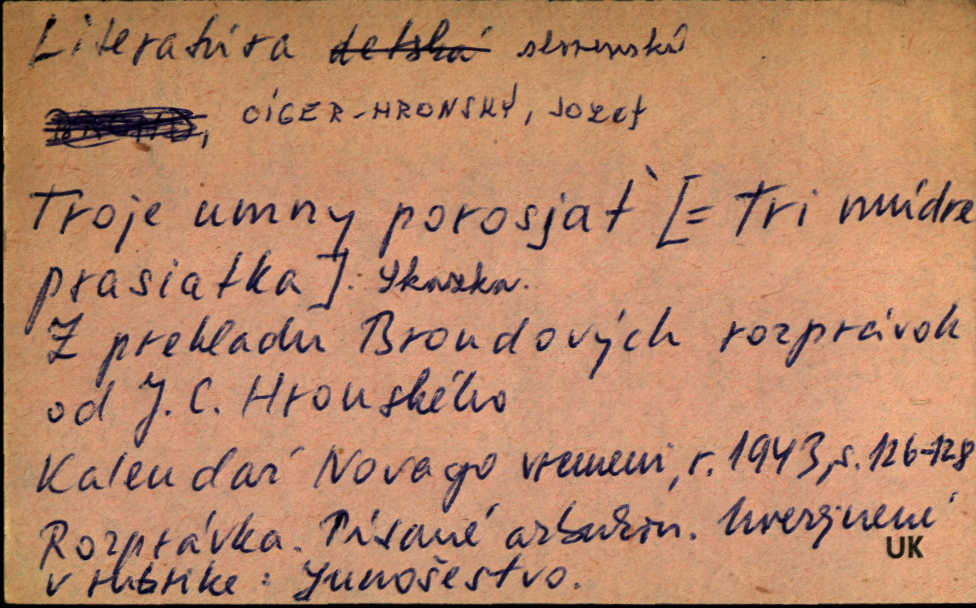 Literatúra detská slovenská
CÍGER-HRONSKÝ, Jozef
Troje umny porosjať [= Tri múdre
prasiatka]. Skazka.
Z prekladu Broudových rozprávok
od J. C. Hronského
Kalendař Novago vremeni, r. 1943, s. 126-128
Rozprávka. Písané azbukou. Uverejnené
UK
v rubrike: Junošestvo.